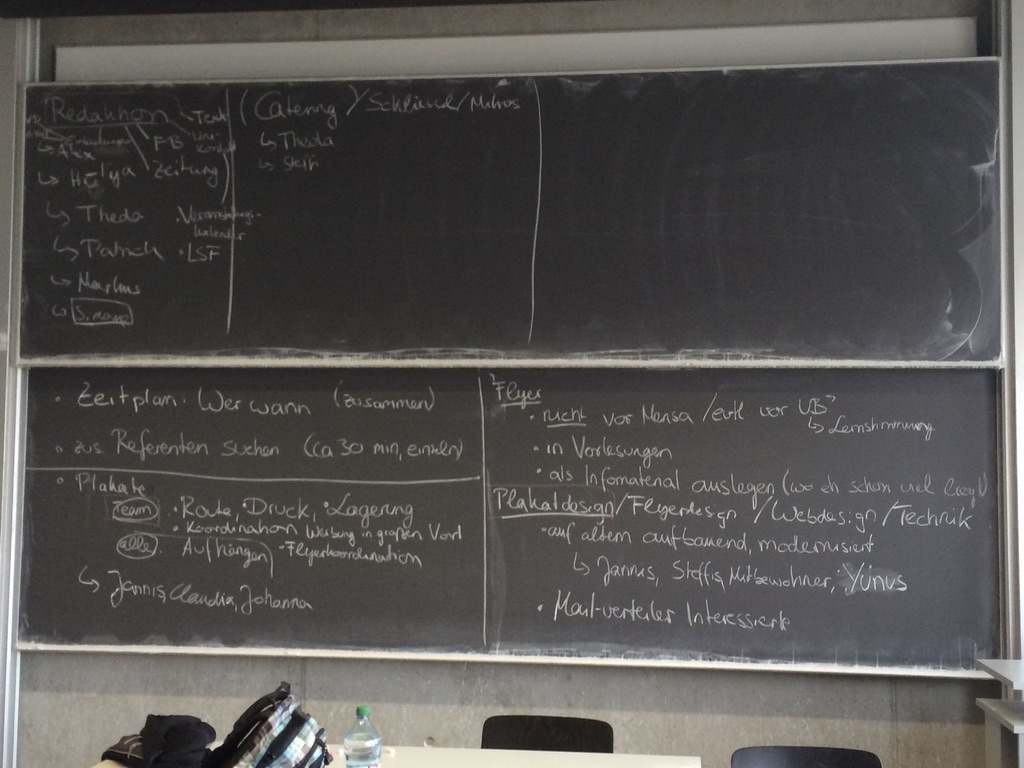 Redaktion
Text
FB
Alex
Hülya
Zeitung
Theda
Veranstaltungs-
kalender
Patrick
· LSF
Markus
S. mama
(Catering)/Schlüssel/Mikros
Theda
Steffi
· Zeitplan: Wer wann (zusammen)
· zus Referenten suchen (ca 30 min, einzeln)
· Plakate
Team · Route, · Druck, · Lagerung
· Koordination, Werbung in großen Vorl
alle: Aufhängen · Flyerkoordination
Jannis, Claudia, Johanna
Flyer
· nicht vor Mensa /evtl vor UB?
Lernstimmung
· in Vorlesungen
· als Infomaterial auslegen (wo eh schon viel liegt)
Plakatdesign/Flyerdesign/Webdesign/Technik
· auf altem aufbauend, modernisiert
Jannis, Steffis Mitbewohner, Yunus
· Mail-verteiler Interessierte